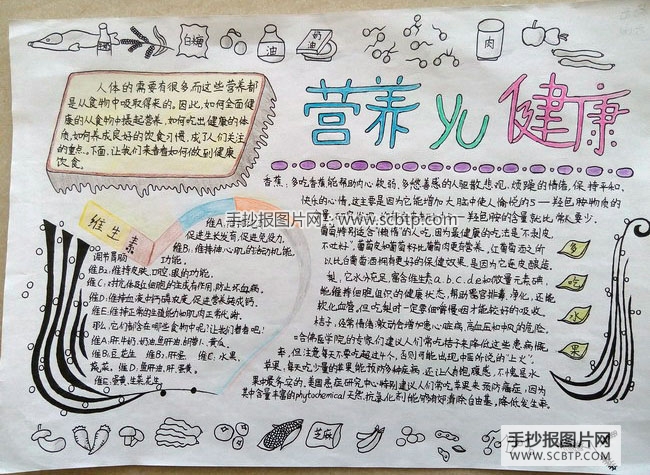 白糖
油
奶油
肉
人体的需要有很多而这些营养都
是从食物中吸取得来的。因此,如何全面健
康的从食物中摄起营养,如何吃出健康的体
质,如何养成良好的饮食习惯,成了人们关注
的重点。下面,让我们来看看如何做到健康
饮食。
营养 yu 健康
维生素
维A:
手抄报图片网:www.scbtp.com
促进生长发育,促进免疫力.
维B₁:维持神心肌的活动机能,
调节胃肠 功能.
维B₂:维持皮肤、口腔、眼的功能.
维C:对抗体及红细胞的生成有作用,防止坏血病.
维D:维持血液中钙磷浓度,促进营养钙代奶.
维E:维持正常的生殖能力和肌肉正常代谢.
那么,它们都含在哪些食物中呢?让我们看看吧!
维A:肝、牛奶、奶油、鱼肝油、胡萝卜、蛋黄.
维B₁:豆、花生 维B₂:肝、蛋. 维C:水果、
蔬菜. 维D:鱼肝油、肝、蛋黄.
维E:蛋黄、生菜、花生.
香蕉:多吃香蕉能帮助内心软弱,多愁善感的人驱散悲观、烦躁的情绪,保持平和、
快乐的心情,这主要是因为它能增加大脑中使人愉悦的5—羟色胺物质的
5—羟色胺的含量就比常人要少.
葡萄特别适合“懒惰”的人吃,因为最健康的吃法是“不剥皮、
不吐籽”。葡萄皮和葡萄籽比葡萄肉更有营养,红葡萄酒之所
以比白葡萄酒拥有更好的保健效果是因为它连皮酿造.
梨,它水分充足,富含维生素a.b.c.d.e和微量元素碘,
能维持细胞组织的健康状态,帮助器官排毒、净化,还能
软化血管,但吃梨时一定要细嚼慢咽才能较好的吸收.
桔子,经常情绪激动会增加患心脏病、高血压和中风的危险.
合体医学院的专家,建议人们常吃桔子来降低这些患病概
率,但注意每天不要吃超过3个,否则可能出现中医所说的“上火”.
苹果,每天吃少量的苹果能预防多种症病,还让人消饱腹感,不愧是水
果中最多.安的,美国癌症研究中心特别建议人们常吃苹果来预防癌症,因为
其中含量丰富的phytochemical天然抗氧化剂能够有效清除自由基,降低发生率.
多
吃
水
果
芝麻
手抄报图片网
WWW.SCBTP.COM